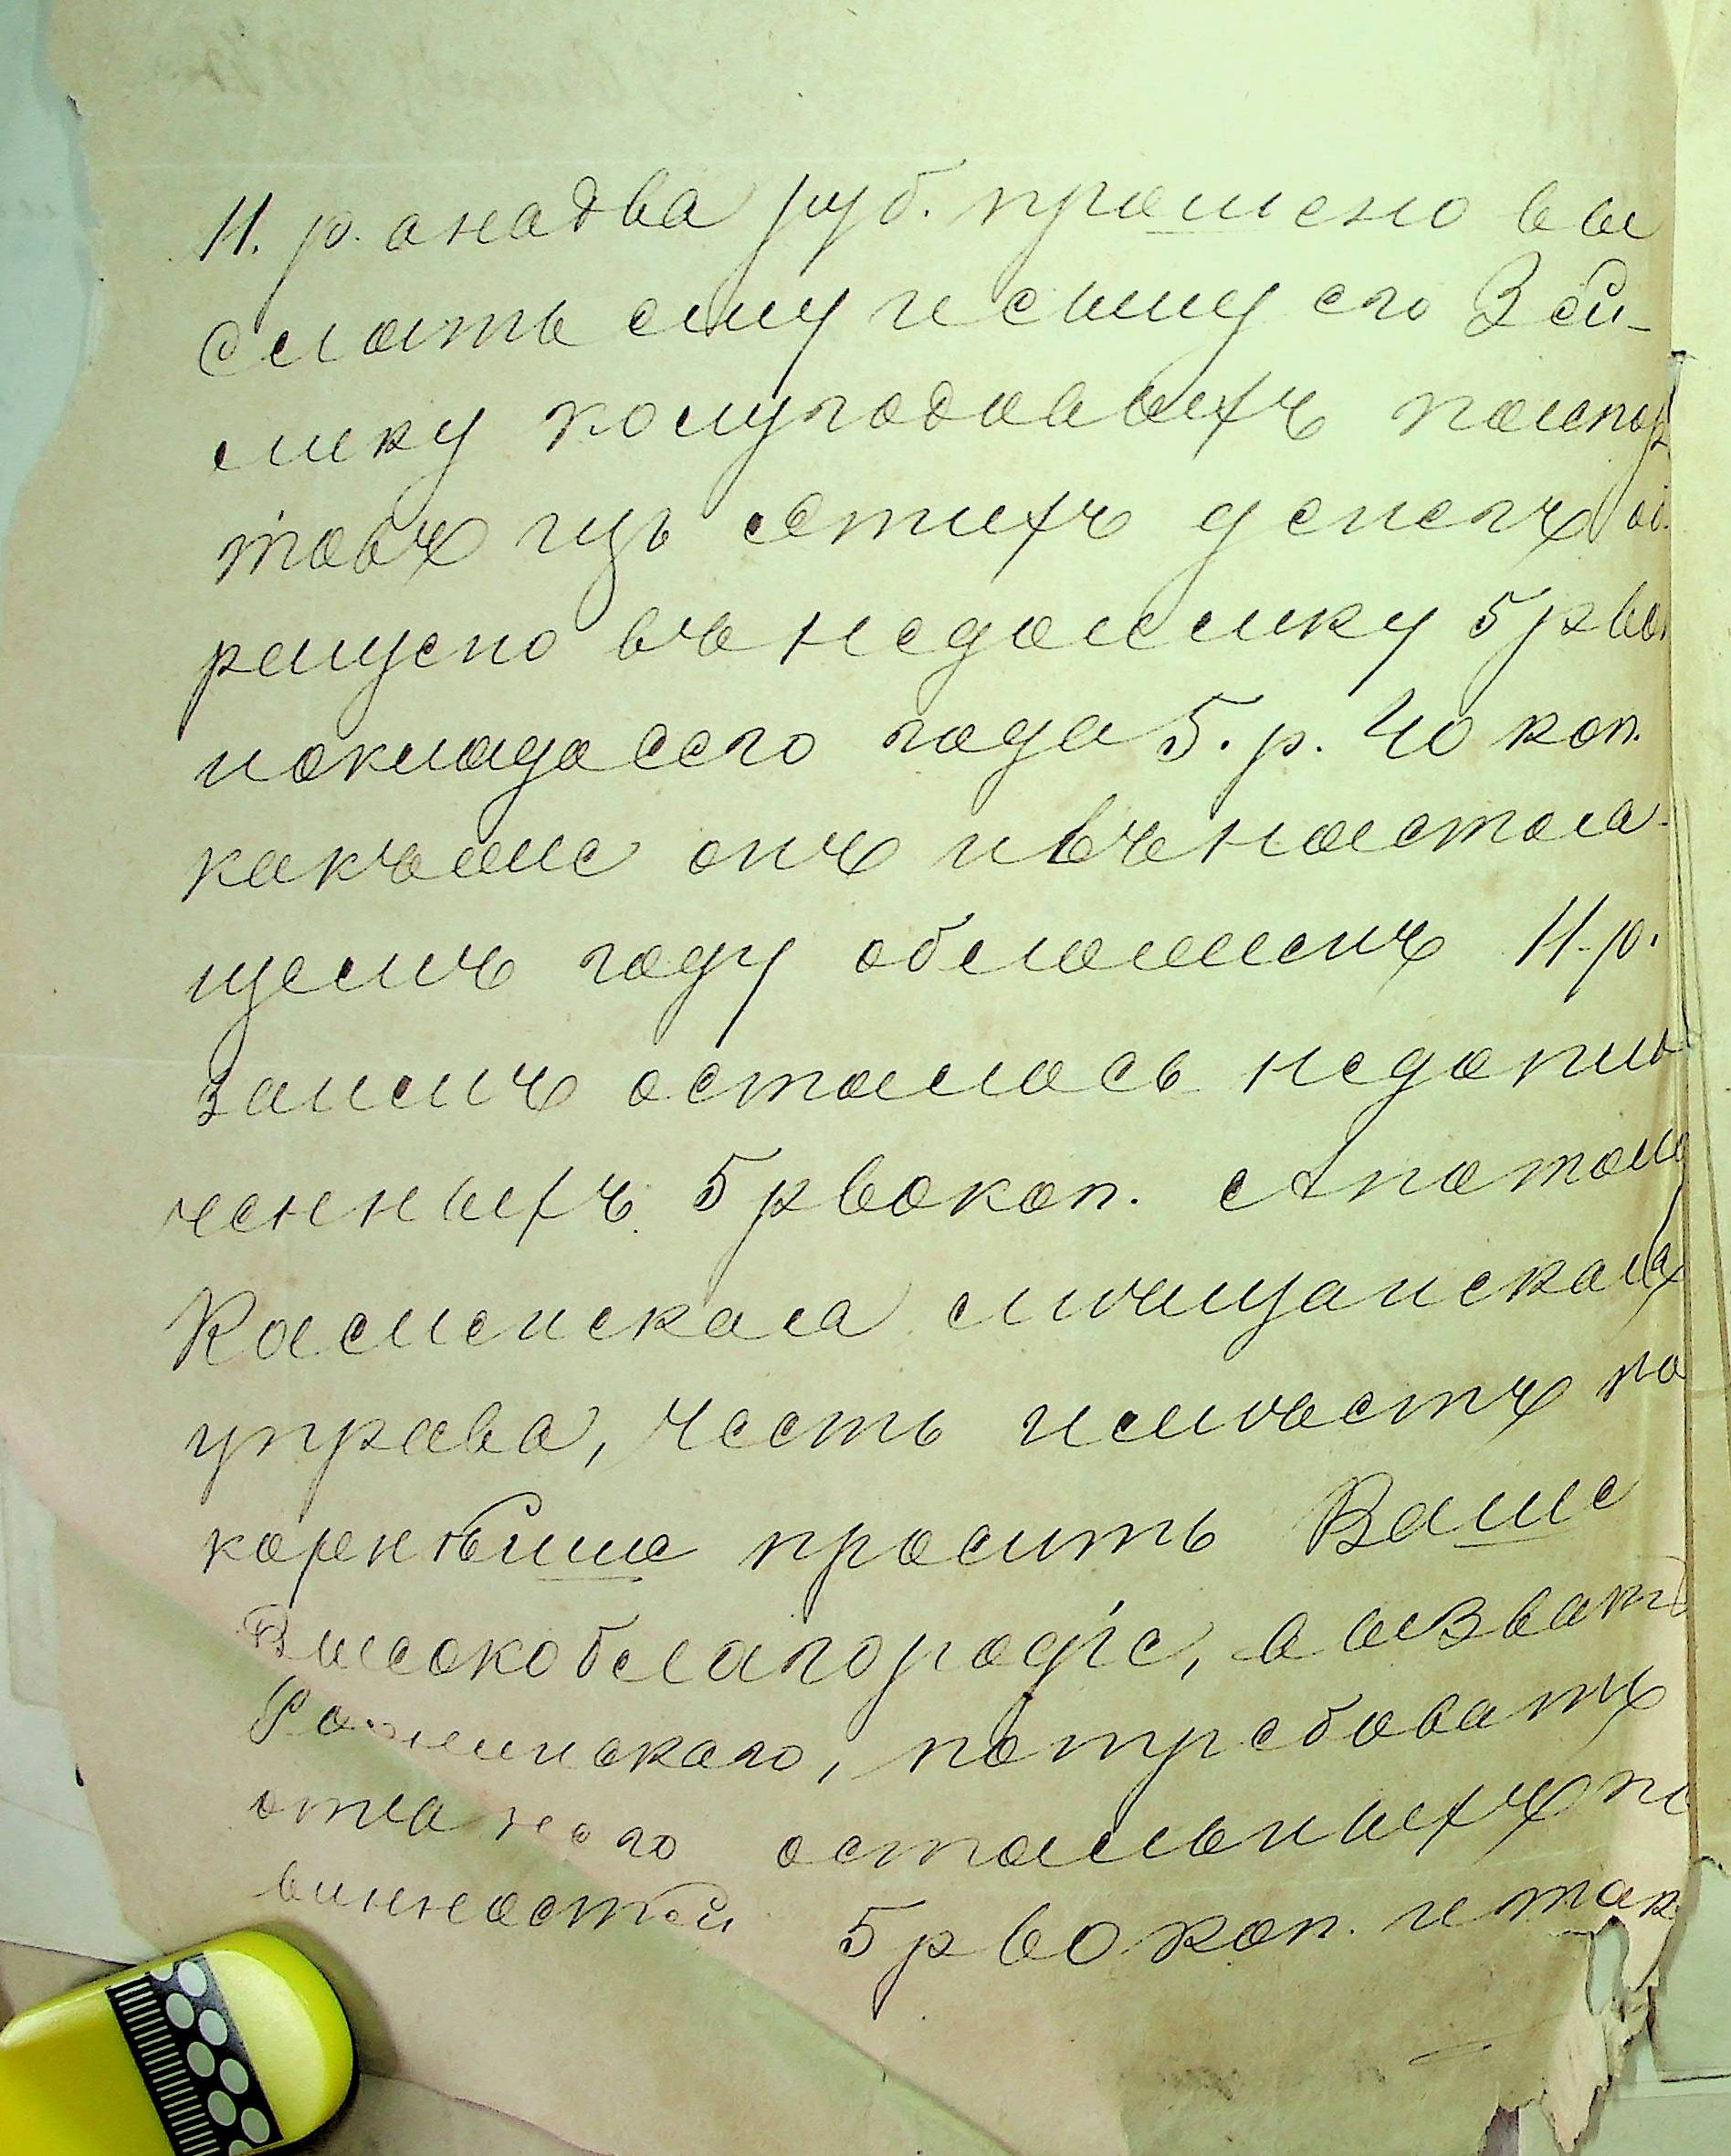 11. р. а на два руб. прошено вы
слать ему и сыну его Зей-
лику полугодовыхъ паспор
товъ изъ этихъ денегъ об
ращено въ недоимку 5 р 60
и оклада сего года 5. р. 40 коп.
какъ же онъ и въ настоя-
щемъ году обложенъ 11. р.
За нимъ осталось недопла
ченныхъ 5 р 60 коп. А потому
Каменская мѣщанская
управа, честь имѣетъ по
корнѣйше просить Ваше
Высокоблагородіе, вызвать
потребовать
отъ него остальныхъ по
винностей 5 р 60 коп. и так